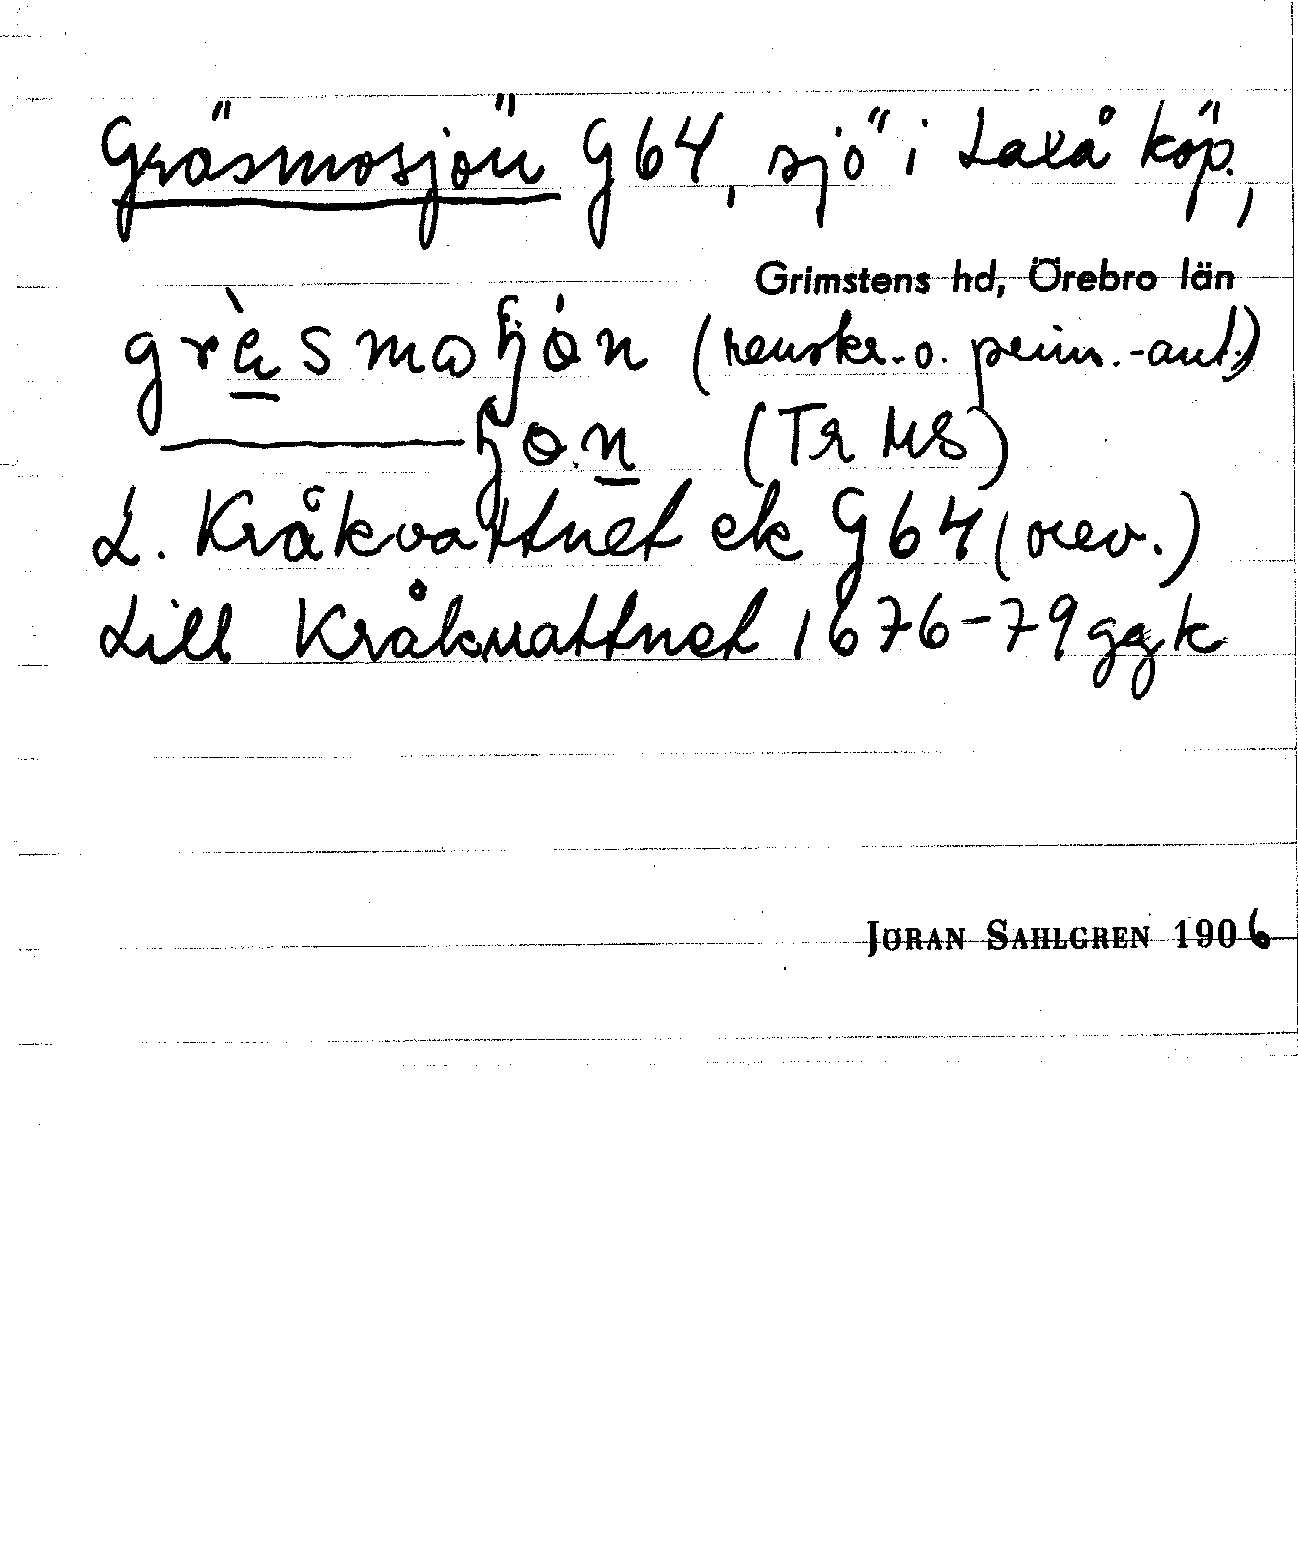 Gräsmosjön G64, sjö i Laxå köp.,
Grimstens hd, Örebro län
gräsmoɧøn (renskr.- o. prim.-ant.)
ɧøn (Tr MS)
L. Kråkvattnet ek G64 (rev.)
Lill Kråkvattnet 1676-79 ggk
JÖRAN SAHLGREN 1906